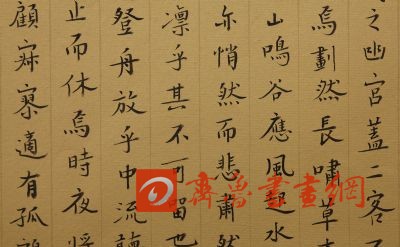 之幽宮蓋二客不
焉劃然長嘯草木
山鳴谷應風起水
亦悄然而悲肅然
凛乎其不可留也
登舟放乎中流聽
止而休焉時夜將
顧寂寥適有孤鶴
齊魯書畫網